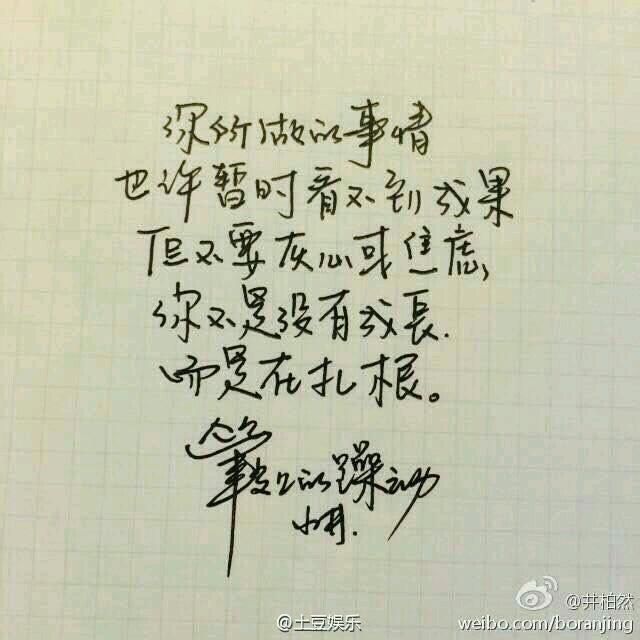 你所做的事情
也许暂时看不到成果
但不要灰心或焦虑,
你不是没有成長.
而是在扎根。
的躁动
小井.
@井柏然
@土豆娱乐
weibo.com/boranjing